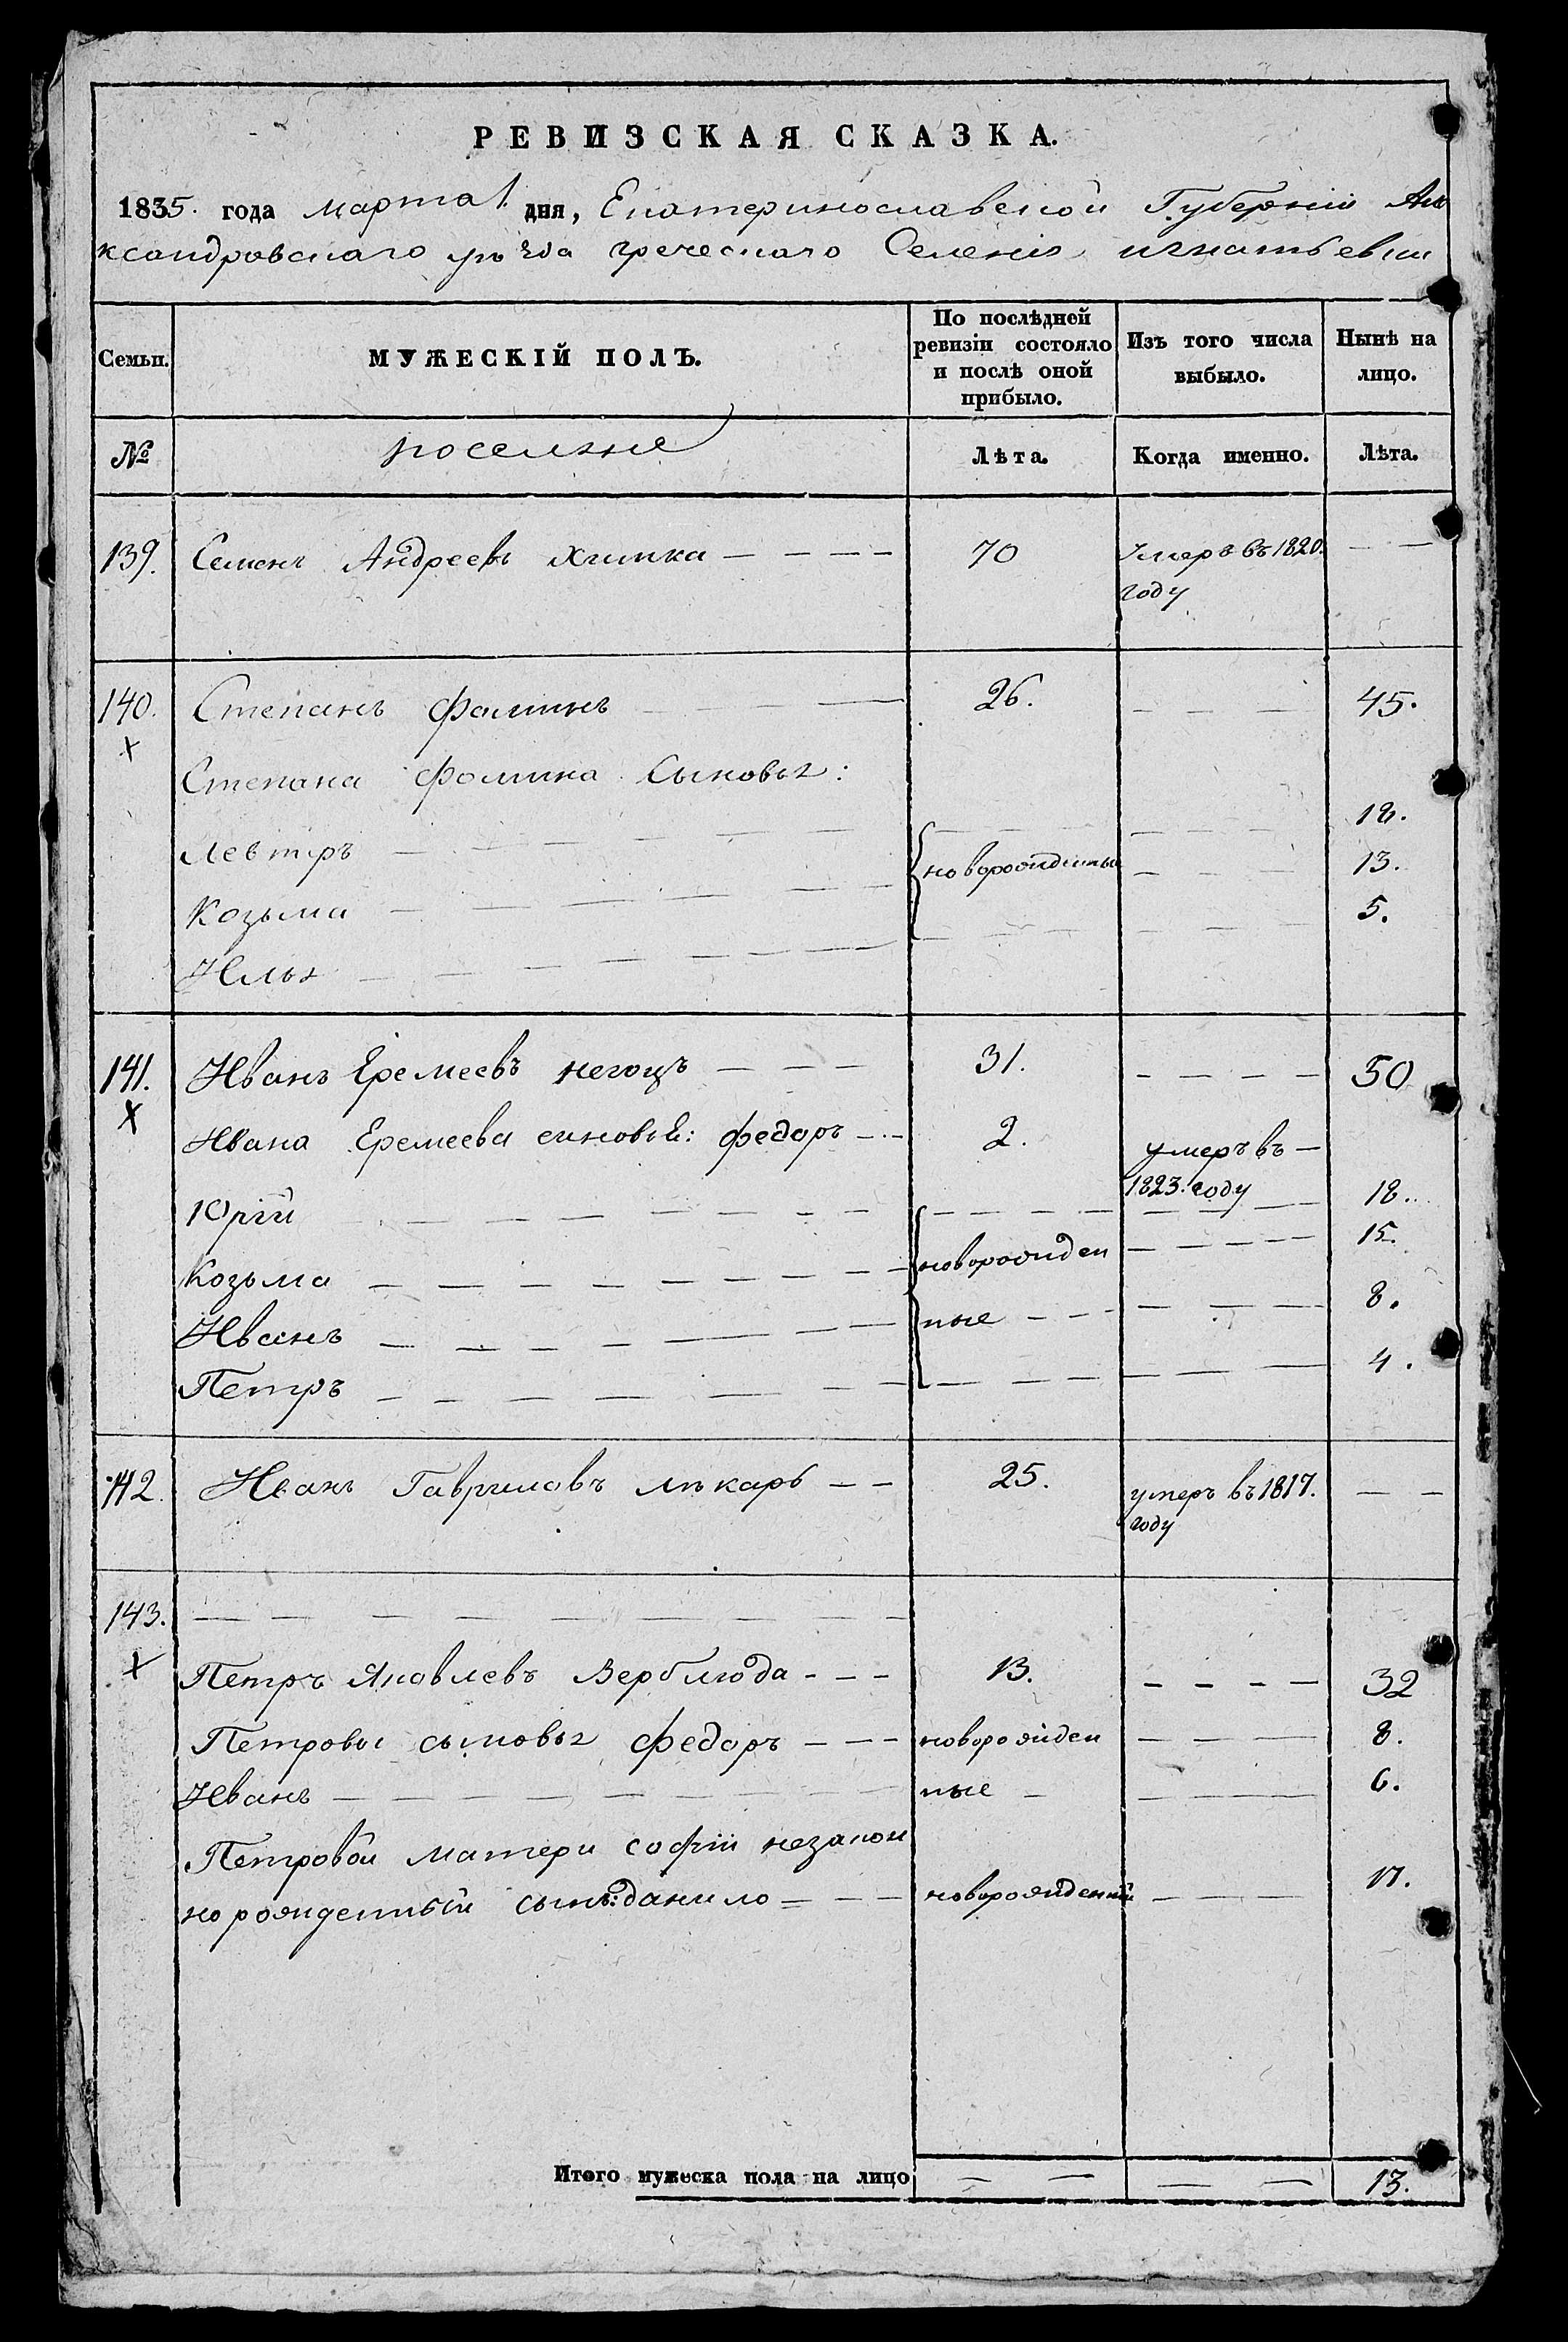 РЕВИЗСКАЯ СКАЗКА.
1835. года марта 1. дня, Екатеринославской Губерніи Але
ксандровскаго уѣзда греческаго Селенія игнатьевки
Семьи. МУЖЕСКІЙ ПОЛЪ. По послѣдней ревизіи состояло и послѣ оной прибыло. Изъ того числа выбыло. Нынѣ на лицо.
№ поселяне Лѣта. Когда именно. Лѣта.
139. Семенъ Андреевъ Хчипка — — — — 70 Умеръ въ 1820. — —
году
140. Степанъ Фоминъ — — — 26. — — — 45.
Х
Степана Фомина Сыновья:
Левтеръ — — — — — — — — — — — — — 18.
Козьма — — — — — новорожденные — — — 13.
Илья — — — — — — — — — — — — — 5.
141. Иванъ Еремеевъ негоцъ — — — 31. — — — — 50
Х
Ивана Еремеева сыновья: Федоръ — - 2. умеръ въ —
1823. году
Юрій — — — — — — — — — — — — — — — 18.
Козьма — — — — — — — — новорожден — — — — 15.
Иванъ — — — — — — — ные — — — — — — 8.
Петръ — — — — — — — — — — — — — 4.
142. Иванъ Гавриловъ лѣкарь — — 25. умеръ въ 1817. — —
году
143. — — — — — — — — —
Х
Петръ Яковлевъ Верблюда - — — 13. — — — — 32
Петровы сыновья Федоръ — — — новорожден — — — 8.
Иванъ — — — — — — — — ные — — — — 6.
Петровой матери софіи незакон
но рожденный сынъ: данило = — — новорожденный — — — 17.
Итого мужеска пола на лицо — — — — 13.